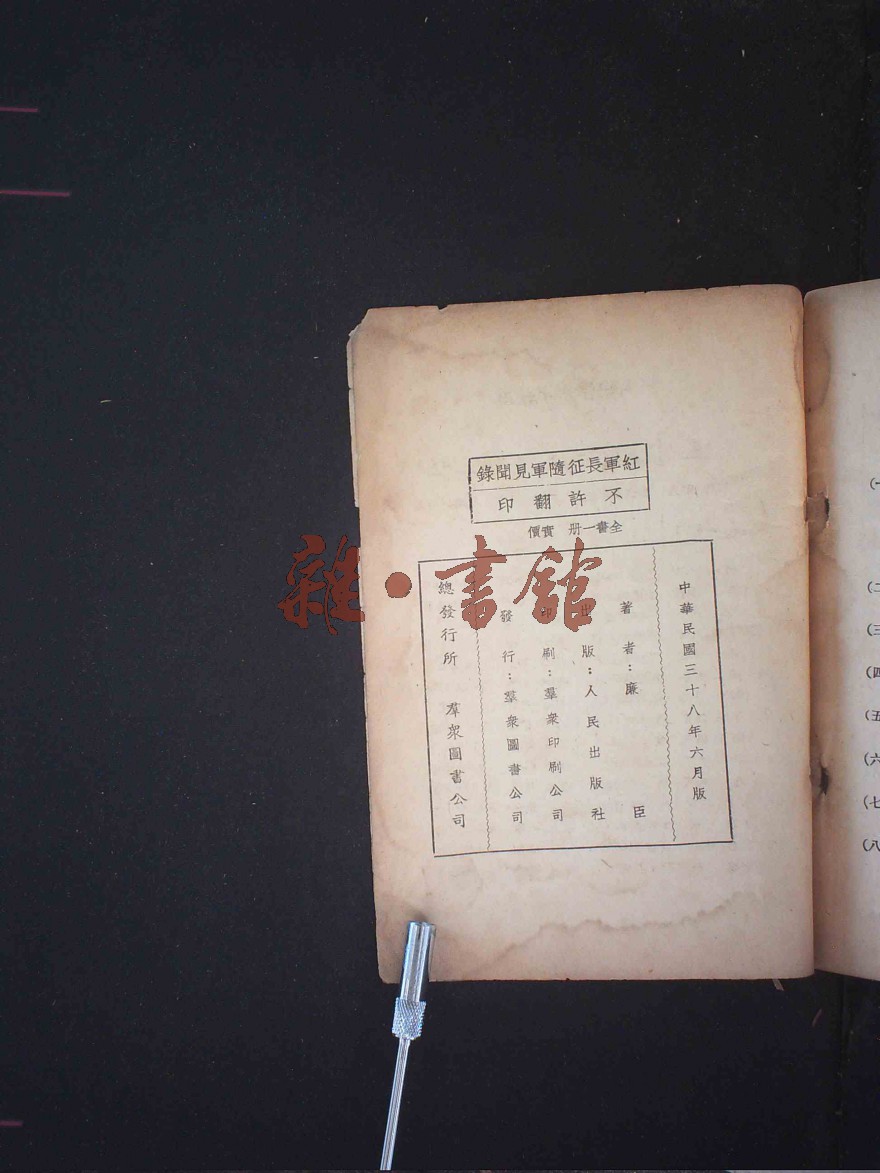 紅軍長征隨軍見聞錄
不許翻印
全書一册　實價
中華民國三十八年六月版
著者：廉臣
出版：人民出版社
印刷：羣衆印刷公司
發行：羣衆圖書公司
總發行所　羣衆圖書公司
雜·書館
(一
(二
(三
(四
(五
(六
(七
(八